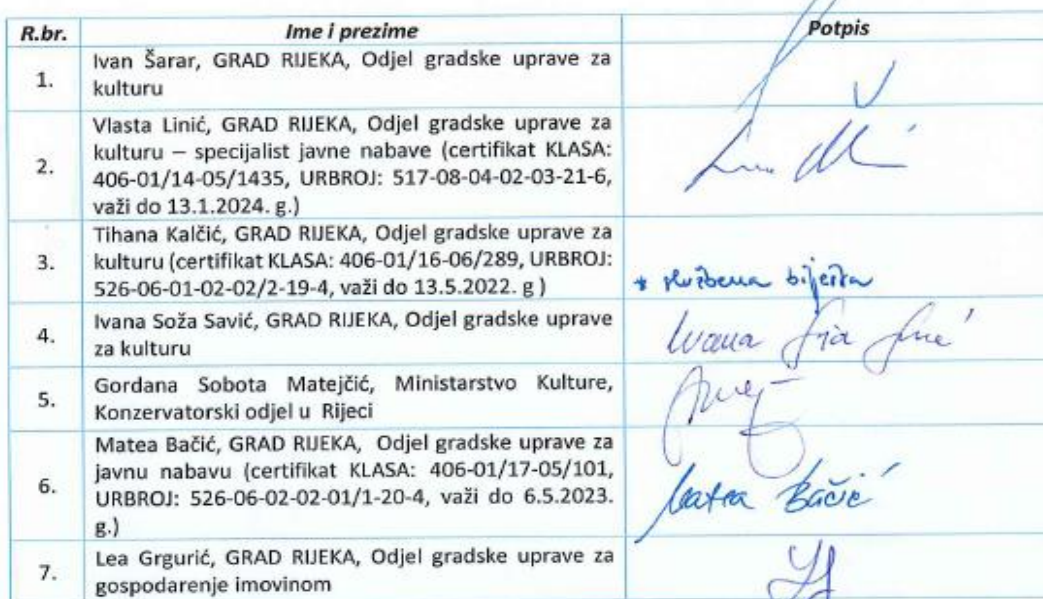 R.br. Ime i prezime Potpis
1. Ivan Šarar, GRAD RIJEKA, Odjel gradske uprave za
kulturu
2. Vlasta Linić, GRAD RIJEKA, Odjel gradske uprave za
kulturu – specijalist javne nabave (certifikat KLASA:
406-01/14-05/1435, URBROJ: 517-08-04-02-03-21-6,
važi do 13.1.2024. g.)
3. Tihana Kalčić, GRAD RIJEKA, Odjel gradske uprave za
kulturu (certifikat KLASA: 406-01/16-06/289, URBROJ:
526-06-01-02-02/2-19-4, važi do 13.5.2022. g )
* službena bilješka
4. Ivana Soža Savić, GRAD RIJEKA, Odjel gradske uprave
za kulturu
Ivana
5. Gordana Sobota Matejčić, Ministarstvo Kulture,
Konzervatorski odjel u Rijeci
6. Matea Bačić, GRAD RIJEKA, Odjel gradske uprave za
javnu nabavu (certifikat KLASA: 406-01/17-05/101,
URBROJ: 526-06-02-02-01/1-20-4, važi do 6.5.2023.
g.)
Matea Bačić
7. Lea Grgurić, GRAD RIJEKA, Odjel gradske uprave za
gospodarenje imovinom